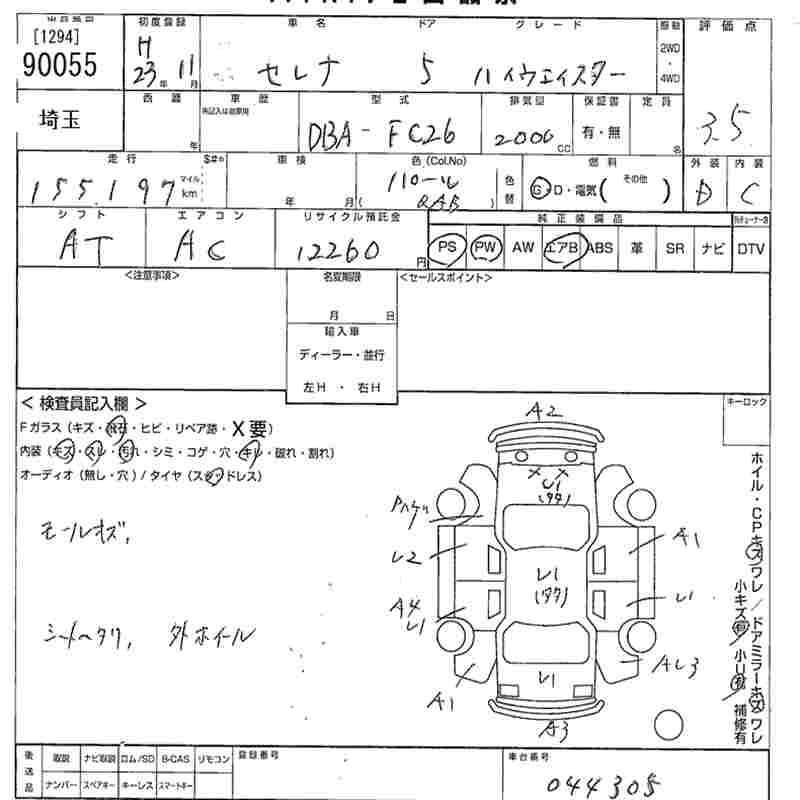 [1294]
90055
初度登録
車名 ドア グレード
駆動
評価点
H
23年 11月
セレナ 5 ハイウェイスター
2WD
・
4WD
埼玉
年
車歴
型式
排気量
保証書
定員
DBA-FC26
2000cc
有・無
名
3.5
走行
車検
色(Col.No)
燃料
外装
内装
155,197 マイル km
年 月
パール
QAB
色替
G・D・電気( その他 )
D
C
シフト
エアコン
リサイクル預託金
純正装備品
AT
AC
12260円
PS PW AW エアB ABS 革 SR ナビ DTV
<注意事項>
名変期限
<セールスポイント>
月 日
輸入車
ディーラー・並行
左H ・ 右H
< 検査員記入欄 >
キーロック
Fガラス(キズ・飛石・ヒビ・リペア跡・X要)
内装(キズ・スレ・汚れ・シミ・コゲ・穴・キレ・破れ・割れ)
オーディオ(無し・穴)/タイヤ(スタッドレス)
モールキズ,
シートヘタリ, 外ホイール
A2
U1
(タタ)
U2
A1
U1
(タタ)
A4
U1
U1
A1
U1
AU3
A3
ホイル・CPキズワレ/ドアミラーキズワレ
小キズ有 小U有 補修有
後送品
取説 ナビ取説 ロム/SD B-CAS リモコン
ナンバー スペアキー キーレス スマートキー
登録番号
車台番号
044305